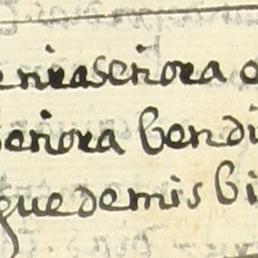 enraseñora
señora bendi
que demis bi